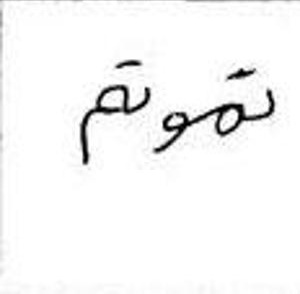 تموتم